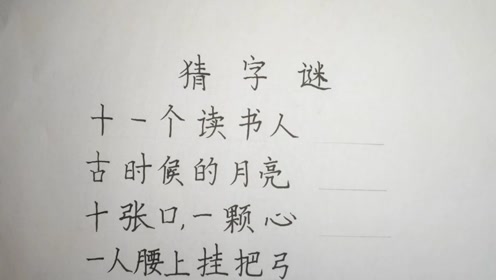 猜字谜
十一个读书人
古时候的月亮
十张口,一颗心
一人腰上挂把弓